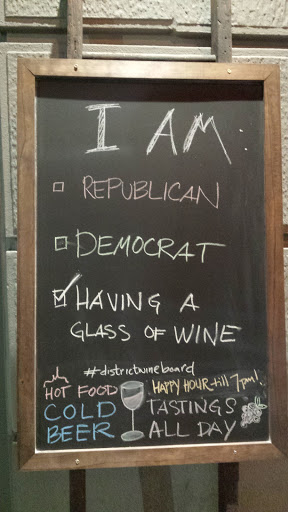 I AM:
REPUBLICAN
DEMOCRAT
HAVING A
GLASS OF WINE
#districtwineboard
HOT FOOD
COLD
BEER
HAPPY HOUR till 7pm!
TASTINGS
ALL DAY